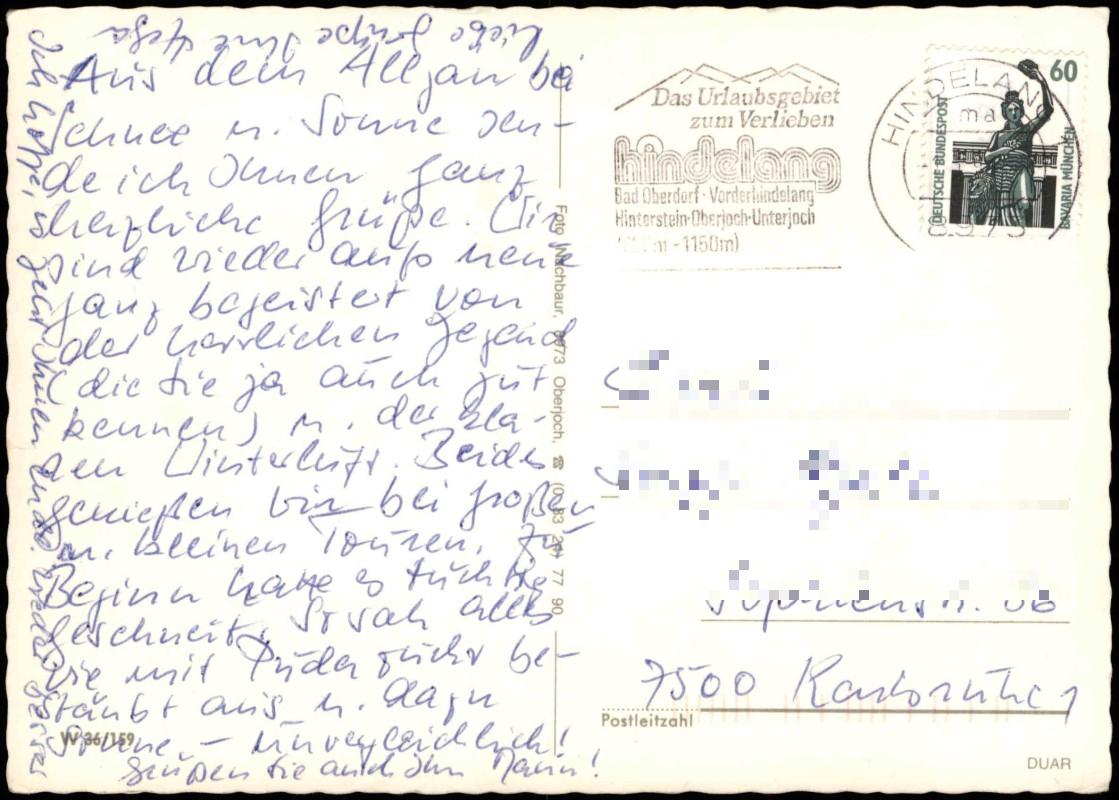 Aus dem Allgäu bei
Schnee u. Sonne sen-
de ich Ihnen ganz
herzliche Grüße. Wir
sind wieder aufs neue
ganz begeistert von
der herrlichen Gegend
(die Sie ja auch gut
kennen) u. der kla-
ren Winterluft. Beides
genießen wir bei großen
u. kleinen Touren. Zu
Beginn hatte es tüchtig
geschneit. So sah alles
wie mit Puderzucker be-
stäubt aus u. dazu
Sonne, – unvergleichlich!
Grüßen Sie auch Ihren Mann!
Ich hoffe, es geht Ihnen wieder
Liebe Grüße Ihre
W 36/159
Foto Wachbaur, 8973 Oberjoch, ☎ (0 83 24) 77 90
Das Urlaubsgebiet
zum Verlieben
hindelang
Bad Oberdorf · Vorderhindelang
Hinterstein-Oberjoch-Unterjoch
-1150m)
HINDELANG
60
DEUTSCHE BUNDESPOST
BAVARIA MÜNCHEN
7500 Karlsruhe 1
Postleitzahl
DUAR